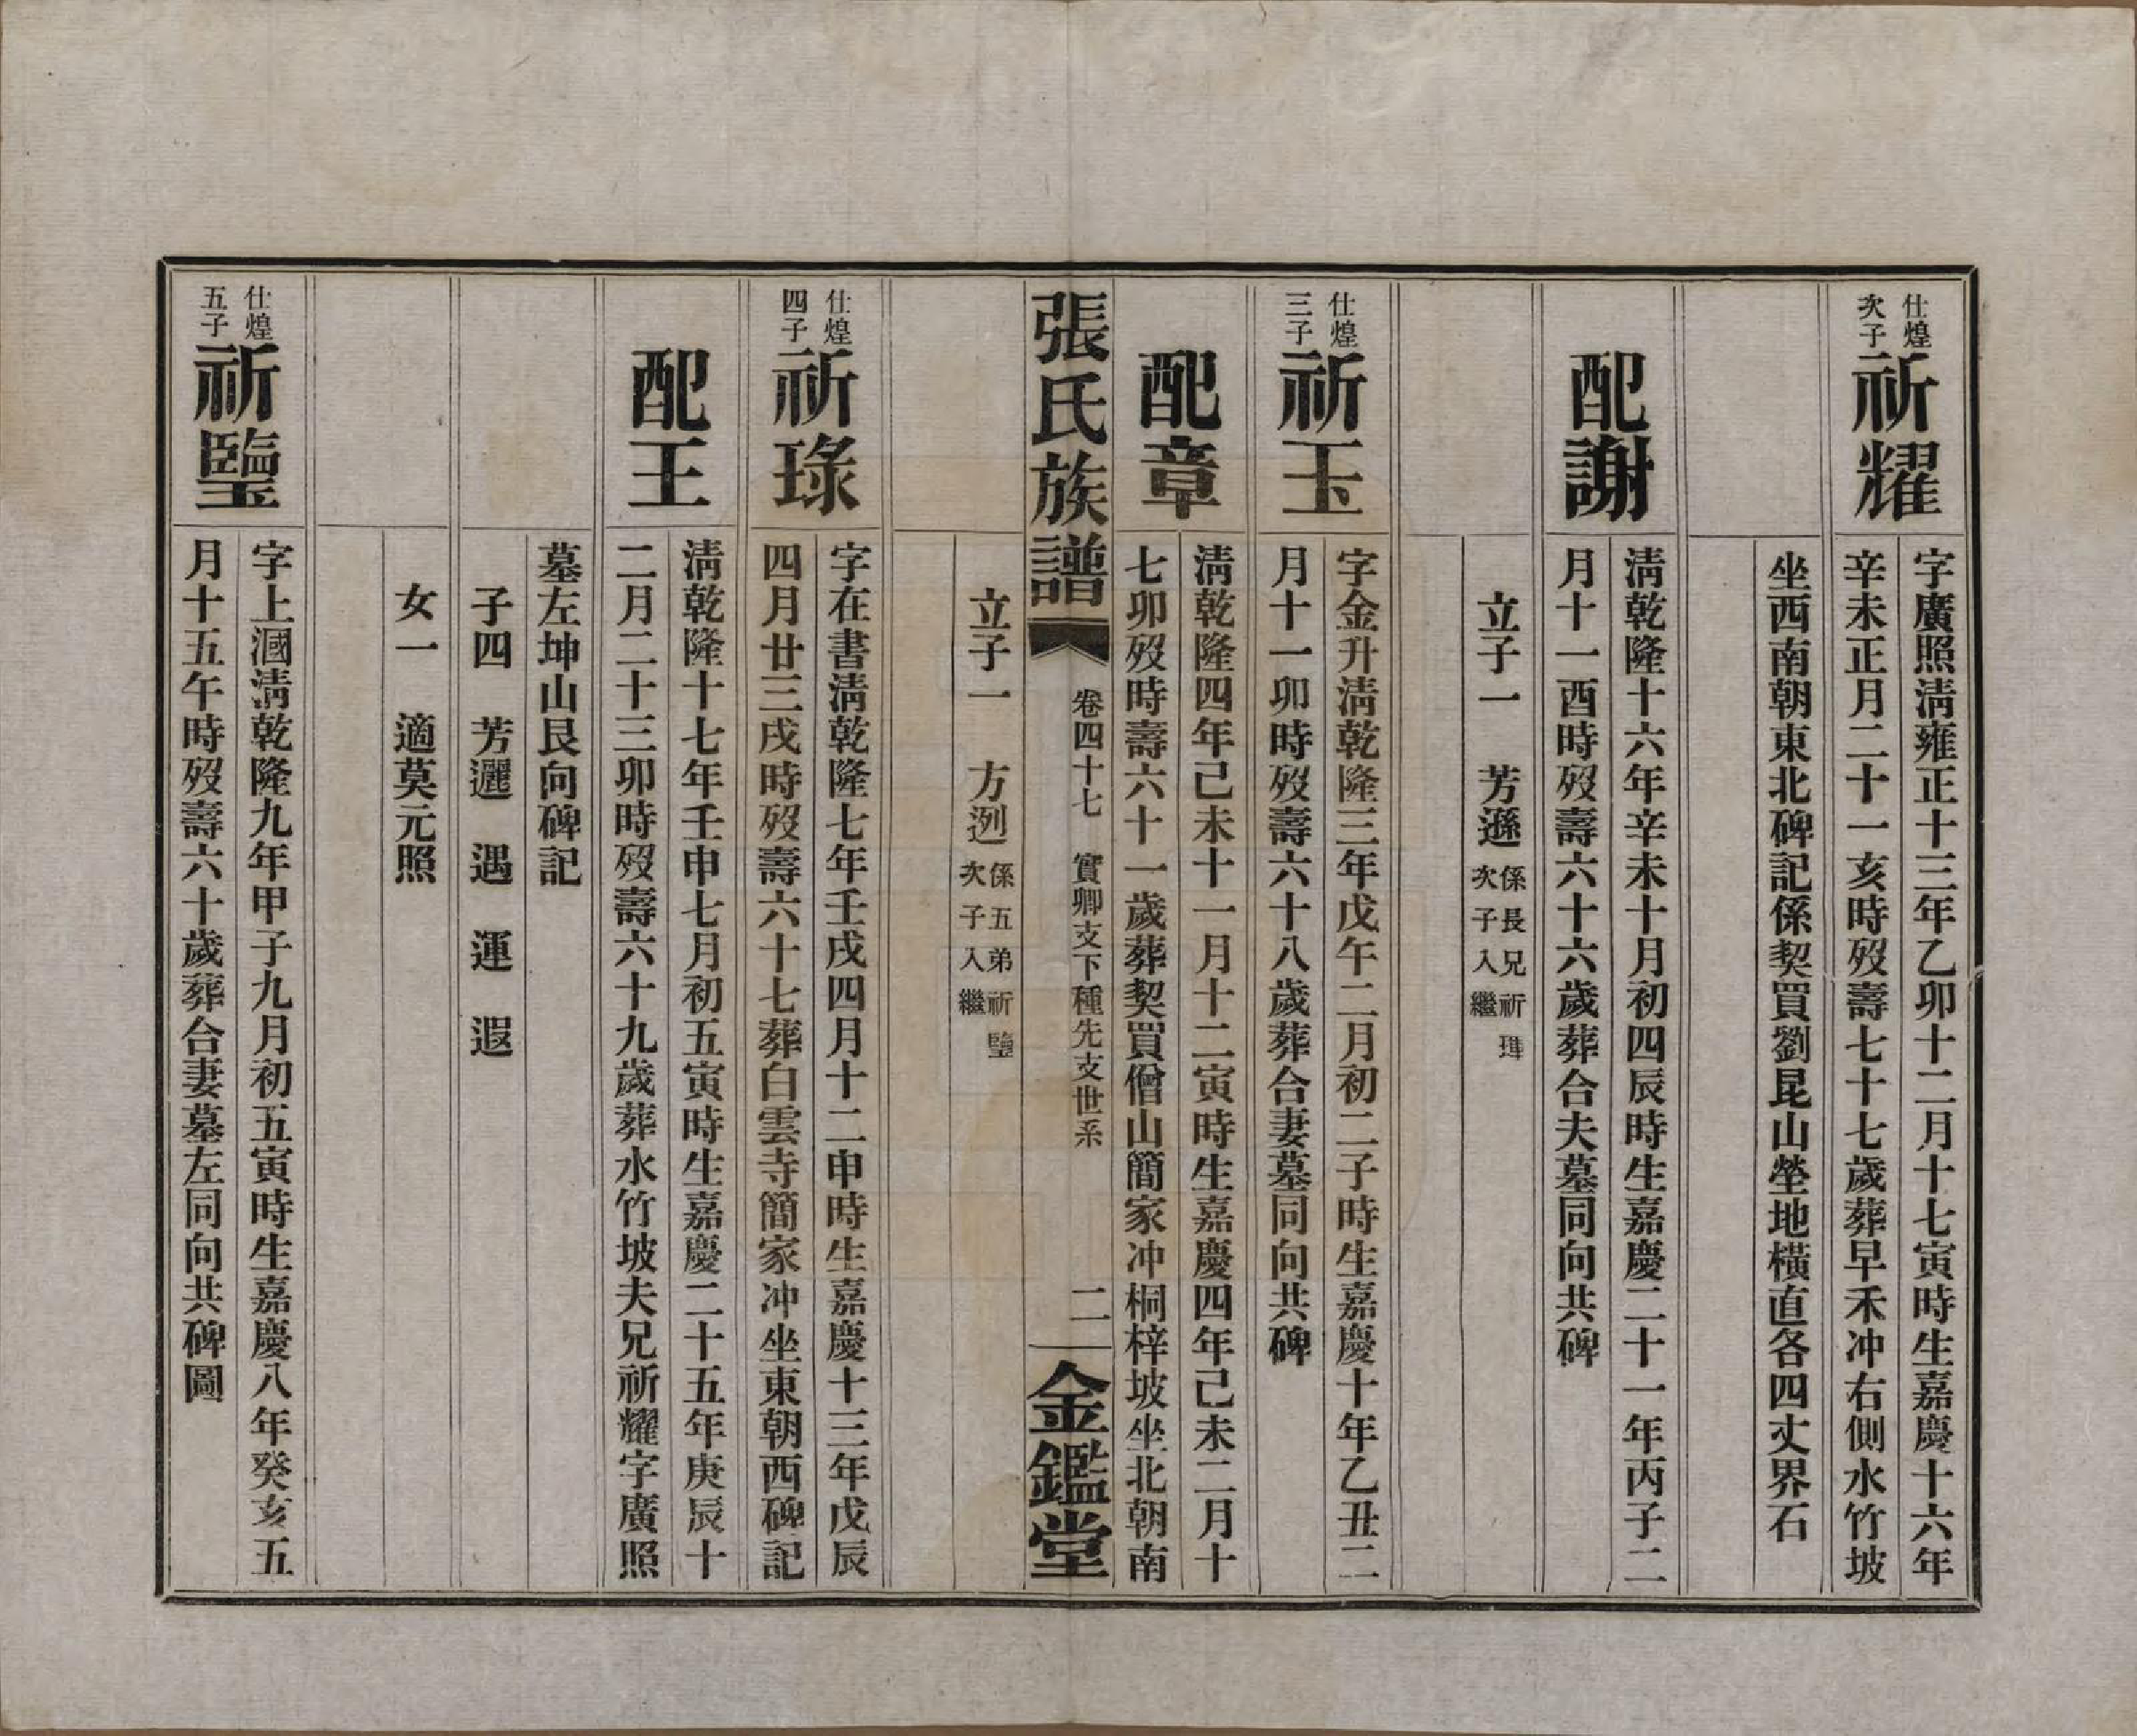 仕煌
次子
祈耀
字廣照淸雍正十三年乙卯十二月十七寅時生嘉慶十六年
辛未正月二十一亥時歿壽七十七歲葬早禾冲右側水竹坡
坐西南朝東北碑記係契買劉昆山塋地橫直各四丈界石
配謝
淸乾隆十六年辛未十月初四辰時生嘉慶二十一年丙子二
月十一酉時歿壽六十六歲葬合夫墓同向共碑
立子一　芳遜
係長兄祈
次子入繼
仕煌
三子
祈玉
字金升淸乾隆三年戊午二月初二子時生嘉慶十年乙丑二
月十一卯時歿壽六十八歲葬合妻墓同向共碑
配章
淸乾隆四年己未十一月十二寅時生嘉慶四年己未二月十
七卯歿時壽六十一歲葬契買僧山簡家冲桐梓坡坐北朝南
張氏族譜
卷四十七　實卿支下種先支世系
二
金鑑堂
立子一　方迾
係五弟祈鑒
次子入繼
仕煌
四子
祈琭
字在書淸乾隆七年壬戌四月十二申時生嘉慶十三年戊辰
四月廿三戌時歿壽六十七葬白雲寺簡家冲坐東朝西碑記
配王
淸乾隆十七年壬申七月初五寅時生嘉慶二十五年庚辰十
二月二十三卯時歿壽六十九歲葬水竹坡夫兄祈耀字廣照
墓左坤山艮向碑記
子四　芳邐　遇　運　遐
女一　適莫元照
仕煌
五子
祈鑒
字上漍淸乾隆九年甲子九月初五寅時生嘉慶八年癸亥五
月十五午時歿壽六十歲葬合妻墓左同向共碑圖